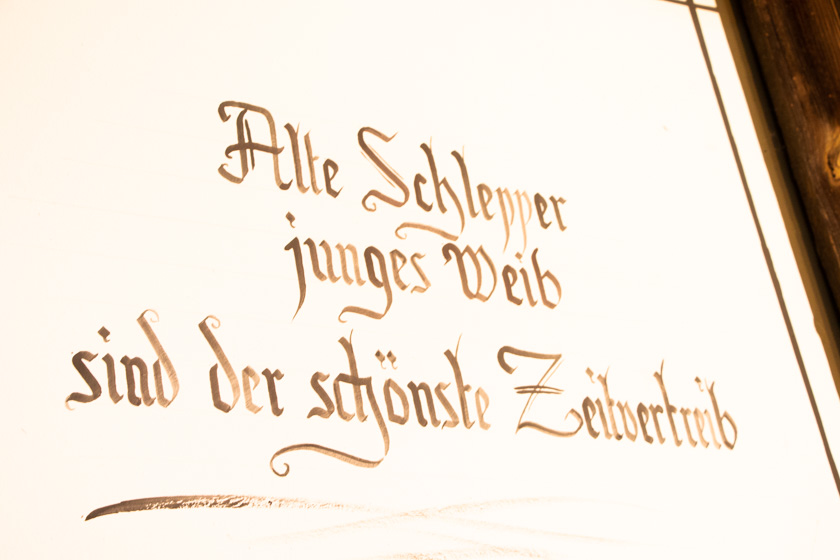 Alte Schlepper
junges Weib
sind der schönste Zeitvertreib